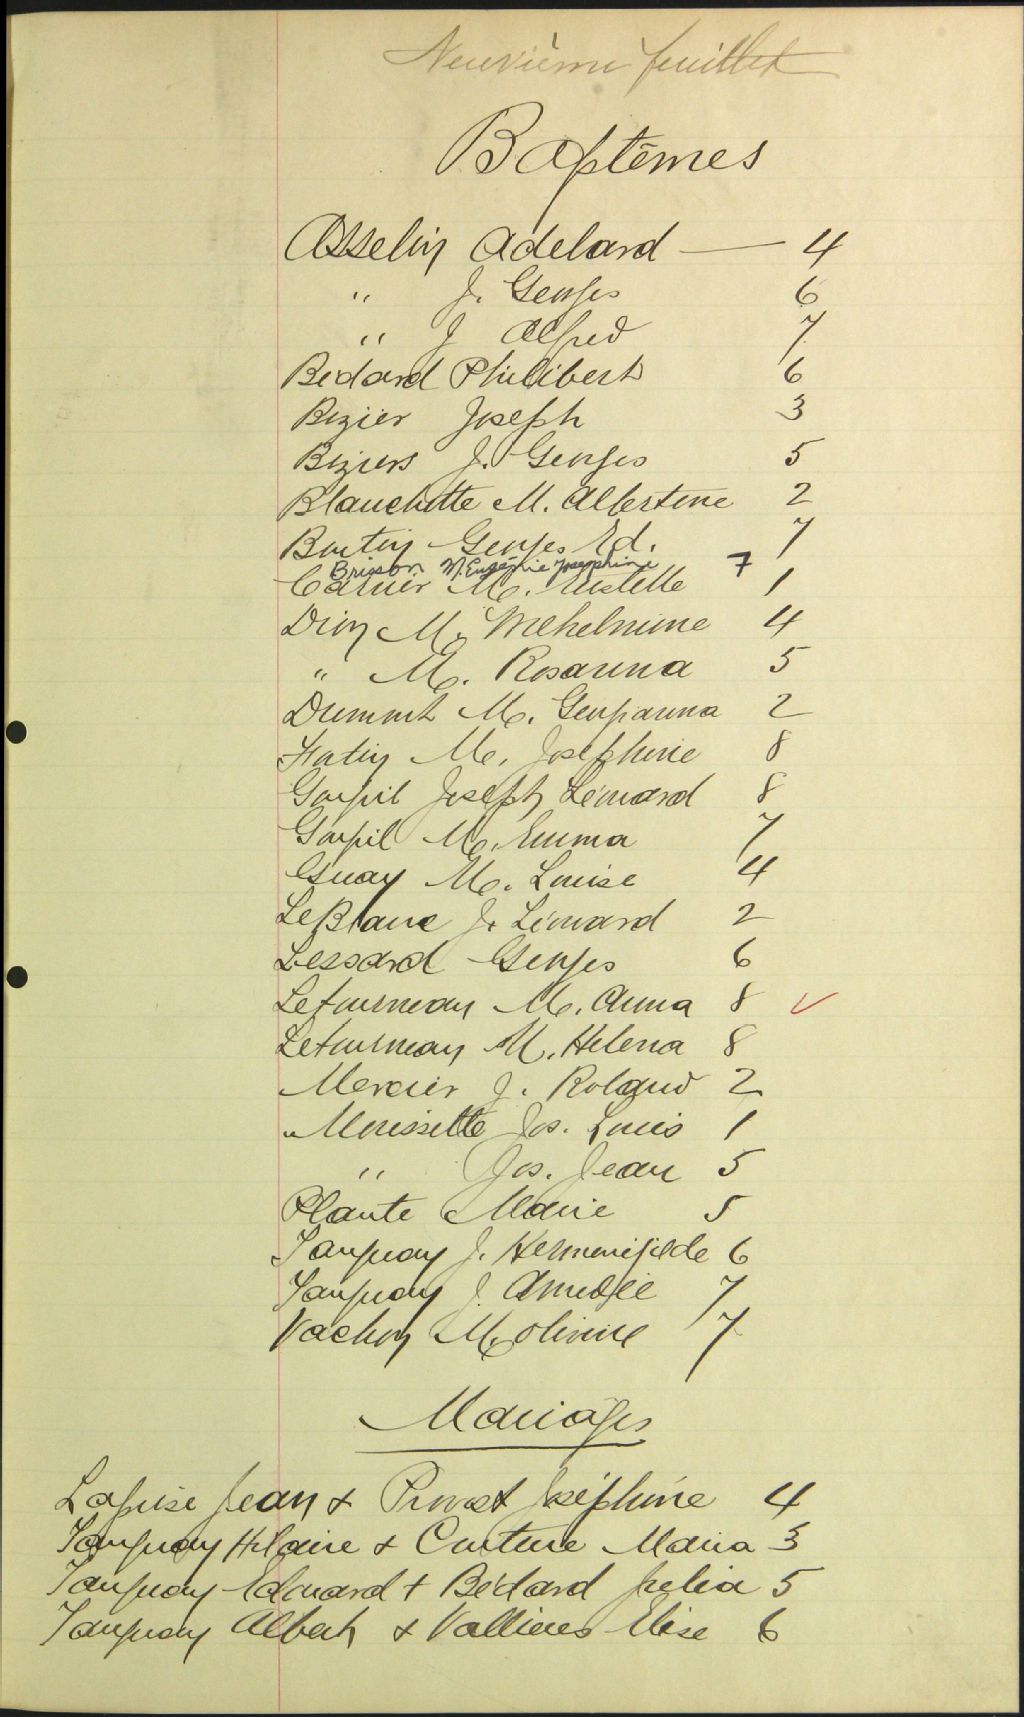 Neuvième feuillet
Baptêmes
Asselin Adelard — 4
" J. Georges 6
" J Alfred 7
Bedard Philibert 6
Bizier Joseph 3
Biziers J. Georges 5
Blanchette M. Albertine 2
Boutin Georges Ed. 7
Brisson M. Eugénie Josephine 7
Carrier M. Estelle 1
Dion M. Wilhelmine 4
" M. Rosanna 5
Dumont M. Georgianna 2
Fortin M. Josephine 8
Goupil Joseph Léonard 8
Goupil M. Emma 7
Guay M. Louise 4
LeBlanc J. Léonard 2
Lessard Georges 6
Letourneau M. Anna 8 ✓
Letourneau M. Helena 8
Mercier J. Roland 2
Morissette Jos. Louis 1
" Jos. Jean 5
Plante Marie 5
Tanguay J. Hermenégilde 6
Tanguay J. Amedée 7
Vachon M. Olivine 7
Mariages
Lapise Jean & Provost Joséphine 4
Tanguay Hilaire & Couture Maria 3
Tanguay Edouard + Bédard Julia 5
Tanguay Albert & Vallieres Elise 6